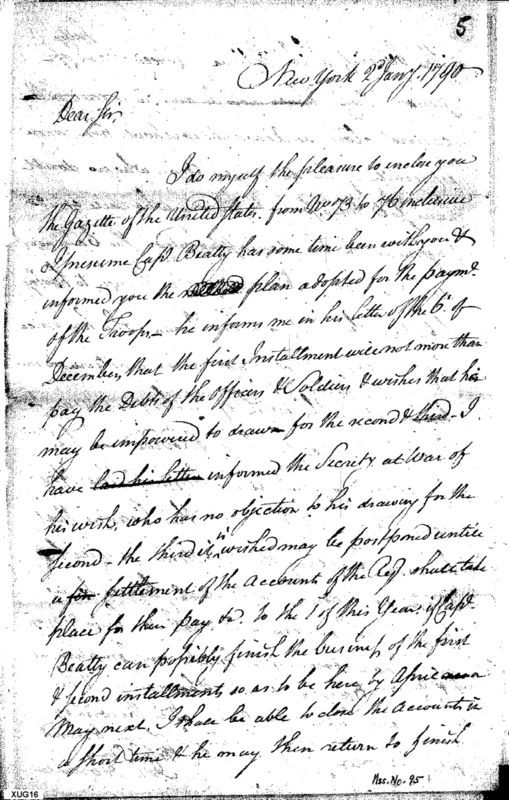 5
New York 2d Jany. 1790
Dear Sir,
I do myself the pleasure to inclose you
the Gazette of the United States. from No 73 to 76 inclusive
I presume Capt Beatty has some time been with you &
informed you the plan adopted for the paymt.
of the Troops— he informs me in his letter of the 6th. of
December, that the first Installment will not more than
pay the Debts of the Officers & Soldiers & wishes that he
may be impowered to draw for the second & third— I
have laid his letter informed the Secrety. at War of
his wish, who has no objection to his drawing for the
second— the third it is wished may be postponed untill
a fin settlement of the Accounts of the Regt. shall take
place for their pay &c. to the 1st of this Year; if Capt.
Beatty can possibly finish the business of the first
& second installments so as to be here by April or
May next. I shall be able to close the accounts in
a short time & he may then return to finish
Mss. No. 95
XUG16